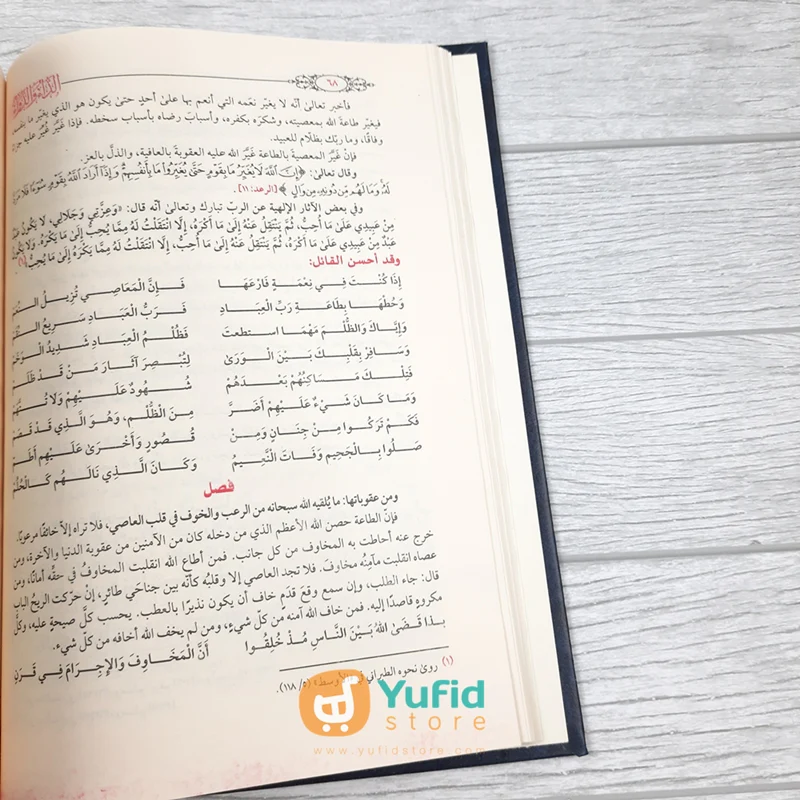 الداء والدواء
٦٨
فأخبر تعالى أنّه لا يغيّر نعمه التي أنعم بها على أحدٍ حتىٰ يكون هو الذي يغيّر ما بنفسه،
فيغيّر طاعةَ الله بمعصيته، وشكرَه بكفره، وأسبابَ رضاه بأسباب سخطه. فإذا غَيَّرَ غُيِّرَ عليه جزاءً
وفاقًا، وما ربّك بظلّام للعبيد.
فإنْ غَيَّرَ المعصيةَ بالطاعة غَيَّرَ الله عليه العقوبةَ بالعافية، والذلَّ بالعز.
وقال تعالىٰ: ﴿إِنَّ اللَّهَ لَا يُغَيِّرُ مَا بِقَوْمٍ حَتَّىٰ يُغَيِّرُوا مَا بِأَنفُسِهِمْ وَإِذَا أَرَادَ اللَّهُ بِقَوْمٍ سُوءًا فَلَا مَرَدَّ
لَهُ وَمَا لَهُم مِّن دُونِهِ مِن وَالٍ﴾ [الرعد: ١١].
وفي بعض الآثار الإلهية عن الربّ تبارك وتعالىٰ أنّه قال: «وَعِزَّتِي وَجَلَالِي، لا يَكُونُ عَبْدٌ
مِنْ عَبِيدِي عَلَىٰ مَا أُحِبُّ، ثُمَّ يَنْتَقِلُ عَنْهُ إِلَىٰ مَا أَكْرَهُ، إِلَّا انْتَقَلْتُ لَهُ مِمَّا يُحِبُّ إِلَىٰ مَا يَكْرَهُ. وَلَا يَكُونُ
عَبْدٌ مِنْ عَبِيدِي عَلَىٰ مَا أَكْرَهُ، ثُمَّ يَنْتَقِلُ عَنْهُ إِلَىٰ مَا أُحِبُّ، إِلَّا انْتَقَلْتُ لَهُ مِمَّا يَكْرَهُ إِلَىٰ مَا يُحِبُّ»(١).
وقد أحسن القائل:
إِذَا كُنْتَ فِي نِعْمَةٍ فَارْعَهَا فَإِنَّ المَعَاصِي تُزِيلُ النِّعَمْ
وَحُطْهَا بِطَاعَةِ رَبِّ العِبَادِ فَرَبُّ العِبَادِ سَرِيعُ النِّقَمْ
وَإِيَّاكَ وَالظُّلْمَ مَهْمَا استطعتَ فَظُلْمُ العِبَادِ شَدِيدُ الوَخَمْ
وَسَافِرْ بِقَلْبِكَ بَيْنَ الوَرَىٰ لِتُبْصِرَ آثَارَ مَنْ قَدْ ظَلَمْ
فَتِلْكَ مَسَاكِنُهُمْ بَعْدَهُمْ شُهُودٌ عَلَيْهِمْ وَلَا تُتَّهَمْ
وَمَا كَانَ شَيْءٌ عَلَيْهِمْ أَضَرَّ مِنَ الظُّلْمِ، وَهُوَ الَّذِي قَدْ قَصَمْ
فَكَمْ تَرَكُوا مِنْ جِنَانٍ وَمِنْ قُصُورٍ وَأُخْرَىٰ عَلَيْهِم أُطُمْ
صَلُوا بِالجَحِيمِ وَفَاتَ النَّعِيمُ وَكَانَ الَّذِي نَالَهُم كَالحُلُمْ
فصل
ومن عقوباتها: ما يُلقيه الله سبحانه من الرعب والخوف في قلب العاصي، فلا تراه إلاّ خائفًا مرعوبًا.
فإنّ الطاعة حصن الله الأعظم الذي من دخله كان من الآمنين من عقوبة الدنيا والآخرة، ومن
خرج عنه أحاطت به المخاوف من كل جانب. فمن أطاع الله انقلبت المخاوفُ في حقّه أمانًا، ومن
عصاه انقلبت مآمنُه مخاوفَ. فلا تجد العاصي إلا وقلبُه كأنّه بين جناحَي طائرٍ، إنْ حرّكت الريحُ الباب
قال: جاء الطلب، وإن سمع وقعَ قدَمٍ خاف أن يكون نذيرًا بالعطب. يحسب كلَّ صيحةٍ عليه، وكلَّ
مكروهٍ قاصدًا إليه. فمن خاف الله آمنه من كلّ شيءٍ، ومن لم يخف الله أخافه من كلّ شيء.
بِذَا قَضَىٰ اللهُ بَيْنَ النَّاسِ مُذْ خُلِقُوا أَنَّ الْمَخَاوِفَ وَالإِجْرَامَ فِي قَرَنِ
(١) روىٰ نحوه الطبراني في «الأوسط» (٥/ ١١٨).
Yufid
store
www.yufidstore.com